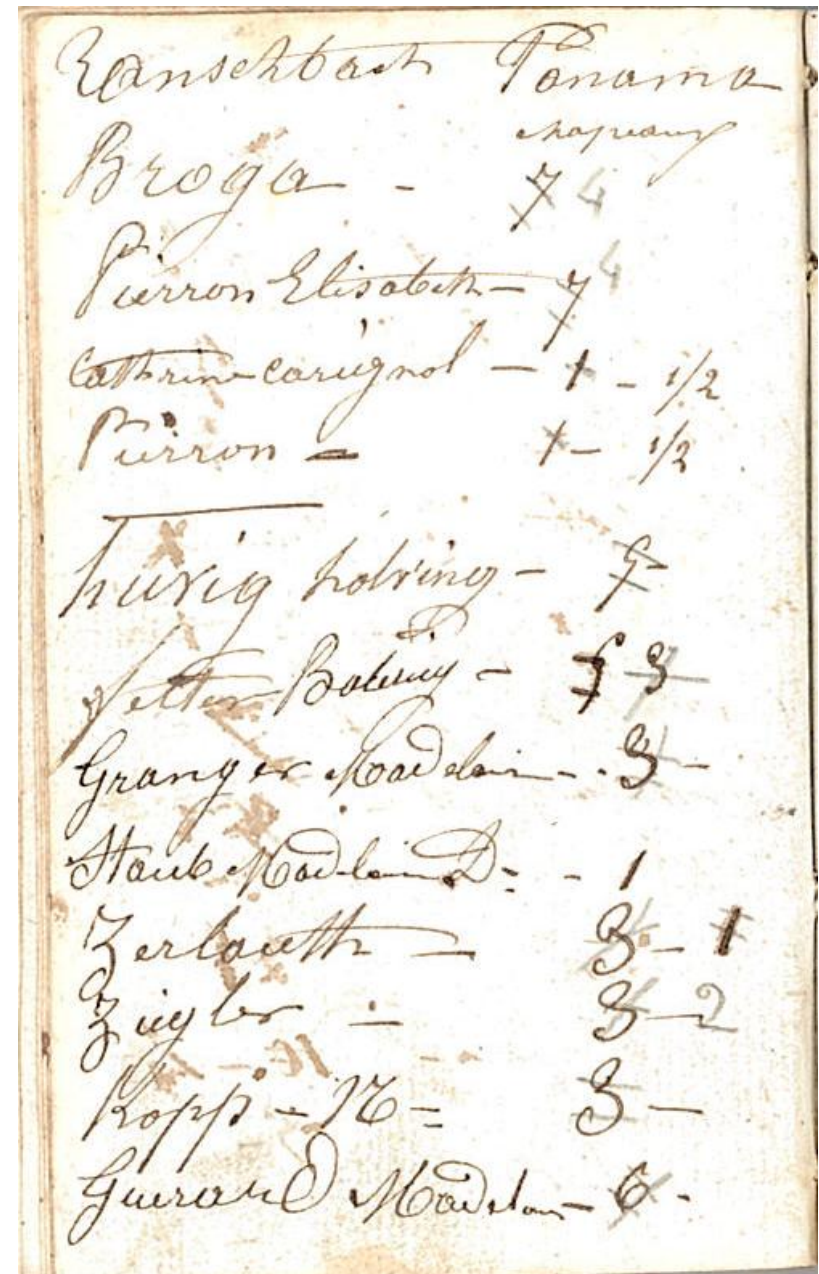 Ranschbach Panama
chapeaux
Broga - 7 4
Pierron Elisabeth - 7 4
Cathrine carignol - 1 - 1/2
Pierron = 1 - 1/2
hurig -
Vetter - 3
Granger Madelain - - 3 -
Staub Madlain D= - 1
Zerlauth - 3 - 1
Ziegler - 3 - 2
Kopp - 16 = 3 -
Guerard Madelain - 6 -